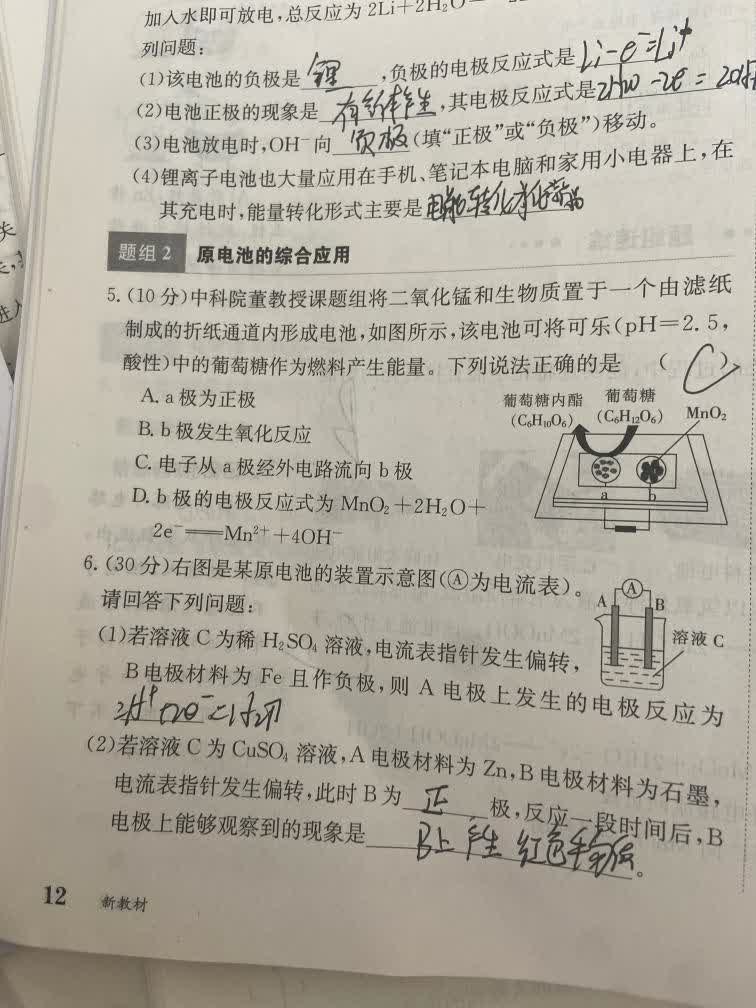 加入水即可放电,总反应为2Li+2H₂O
列问题:
(1)该电池的负极是 锂 ,负极的电极反应式是 Li-e⁻=Li⁺
(2)电池正极的现象是 有气体产生 ,其电极反应式是
(3)电池放电时,OH⁻向 负极 (填“正极”或“负极”)移动。
(4)锂离子电池也大量应用在手机、笔记本电脑和家用小电器上,在
其充电时,能量转化形式主要是
题组2 原电池的综合应用
5.(10分)中科院董教授课题组将二氧化锰和生物质置于一个由滤纸
制成的折纸通道内形成电池,如图所示,该电池可将可乐(pH=2.5,
酸性)中的葡萄糖作为燃料产生能量。下列说法正确的是 ( C )
A. a极为正极
B. b极发生氧化反应
C. 电子从a极经外电路流向b极
D. b极的电极反应式为MnO₂+2H₂O+
2e⁻══Mn²⁺+4OH⁻
葡萄糖内酯 葡萄糖
(C₆H₁₀O₆) (C₆H₁₂O₆) MnO₂
a b
6.(30分)右图是某原电池的装置示意图(Ⓐ为电流表)。
请回答下列问题:
A Ⓐ B
溶液C
(1)若溶液C为稀H₂SO₄溶液,电流表指针发生偏转,
B电极材料为Fe且作负极,则A电极上发生的电极反应为
(2)若溶液C为CuSO₄溶液,A电极材料为Zn,B电极材料为石墨,
电流表指针发生偏转,此时B为 正 极,反应一段时间后,B
电极上能够观察到的现象是 B上产生红色 。
12 新教材